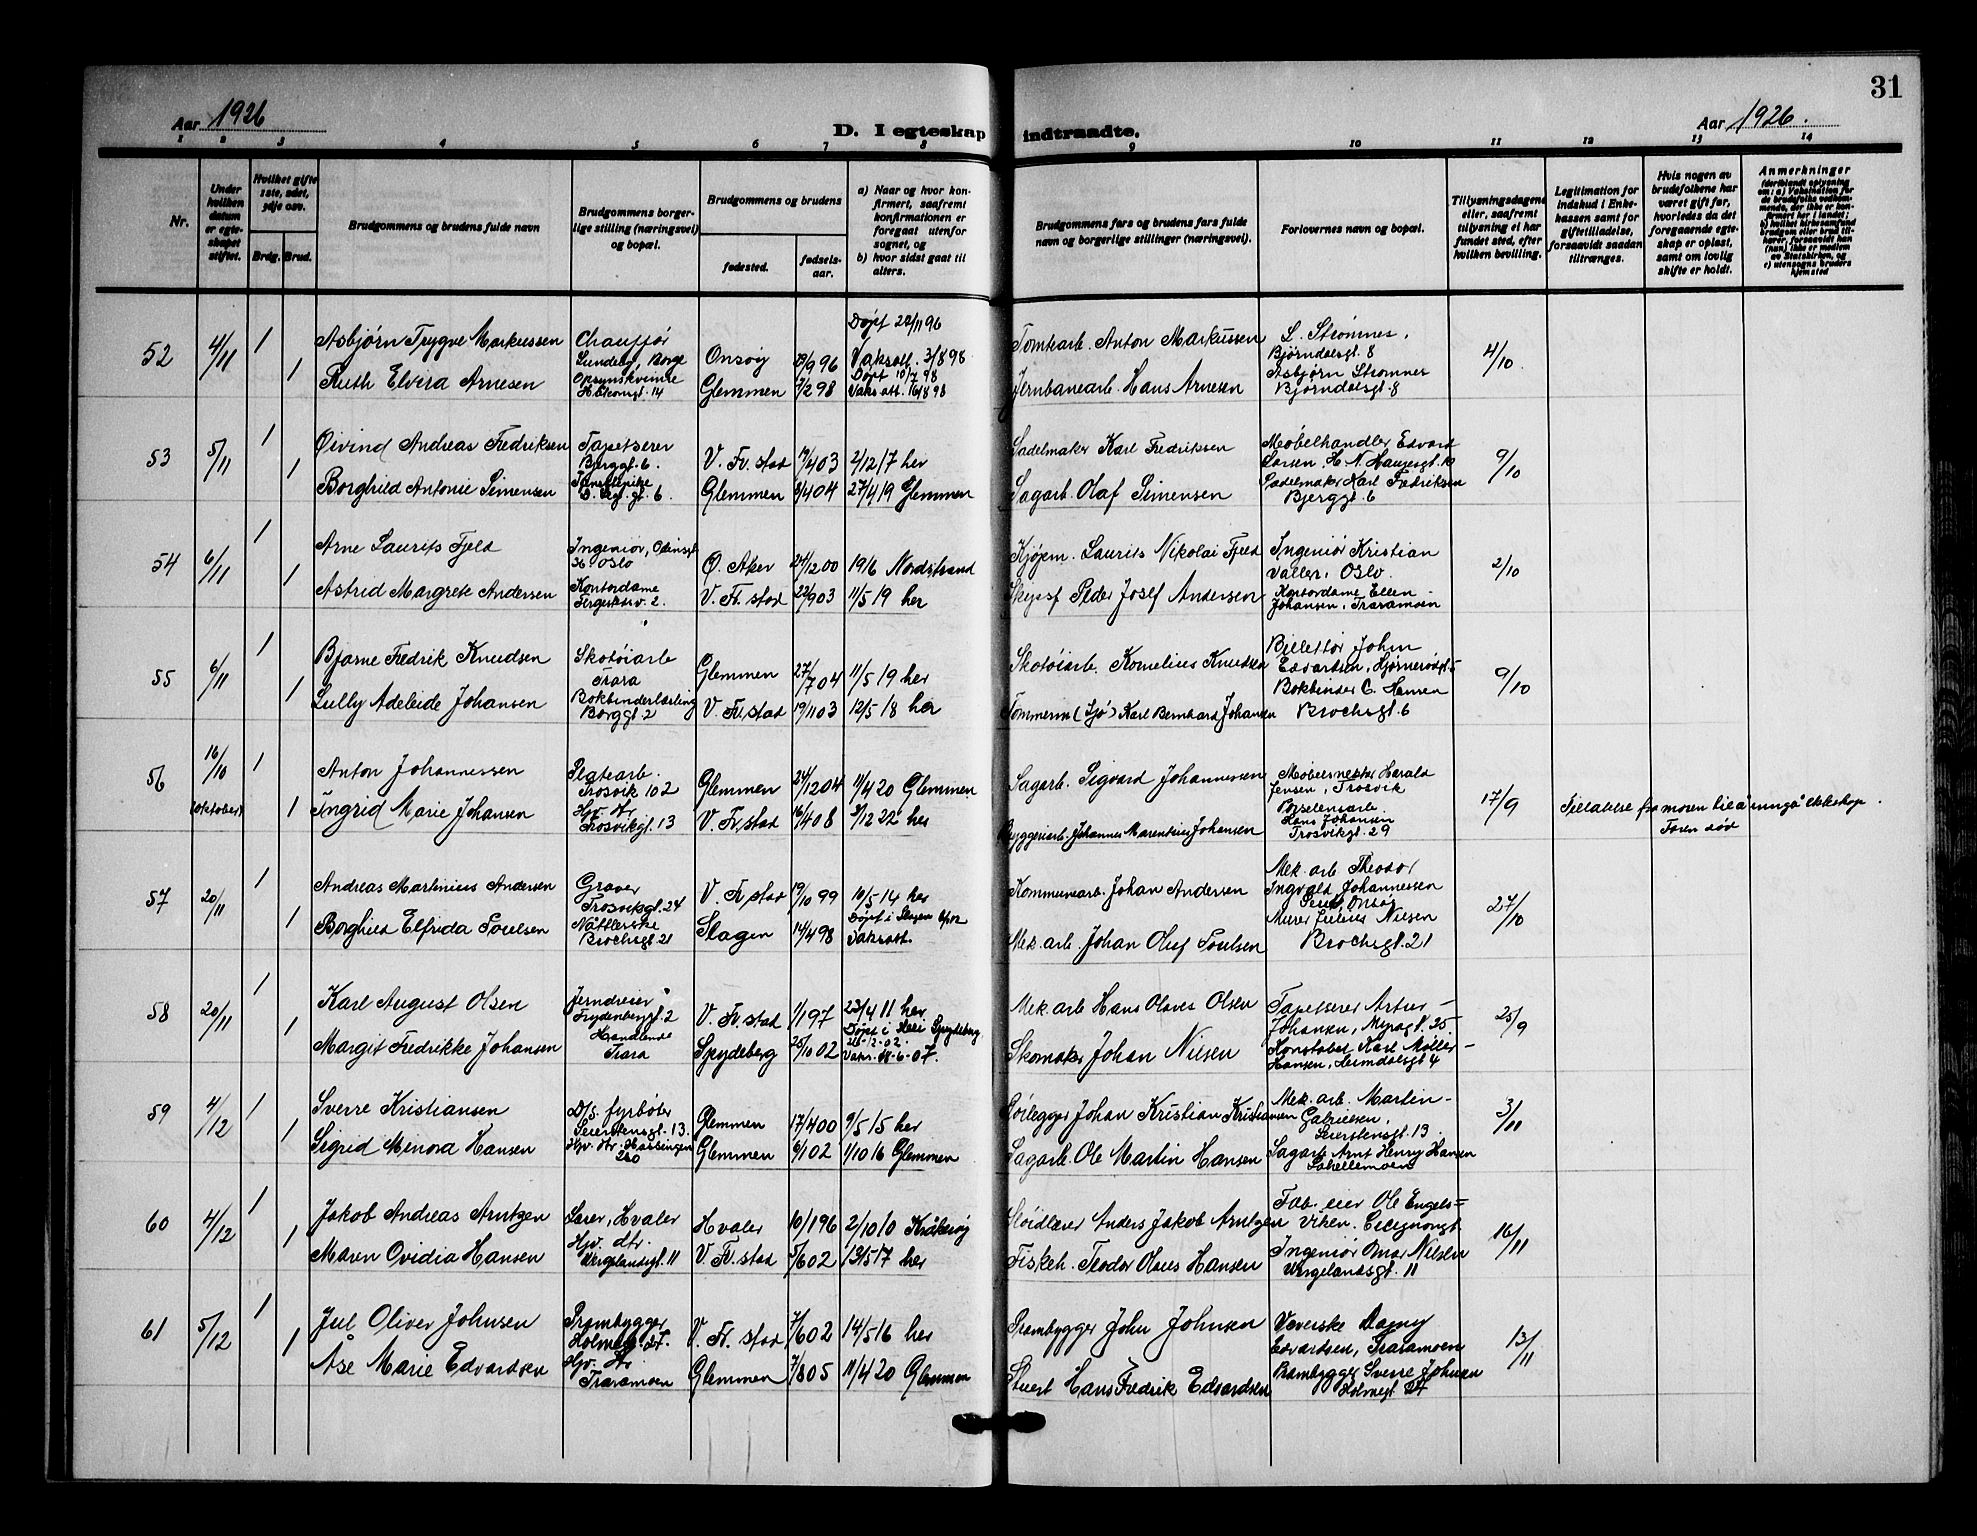 31
Aar 1926
D. I egteskap indtraadte.
Aar 1926.
1 2 3 4 5 6 7 8 9 10 11 12 13 14
Nr.
Under hvilken datum er egteskapet stiftet.
Hvilket gifte 1ste, 2det, 3dje osv.
Brdg. Brud.
Brudgommens og brudens fulde navn
Brudgommens borgerlige stilling (næringsvei) og bopæl.
Brudgommens og brudens
fødested.
fødselsaar.
a) Naar og hvor konfirmert, saafremt konfirmationen er foregaat utenfor sognet, og
b) hvor sidst gaat til alters.
Brudgommens fars og brudens fars fulde navn og borgerlige stillinger (næringsvei).
Forlovernes navn og bopæl.
Tillysningsdagene eller, saafremt tillysning ei har fundet sted, efter hvilken bevilling.
Legitimation for indskud i Enkekassen samt for giftetilladelse, forsaavidt saadan tiltrænges.
Hvis nogen av brudefolkene har været gift før, hvorledes da det foregaaende egteskap er opløst, samt om lovlig skifte er holdt.
Anmerkninger
(deriblandt oplysning om: a) Vaksination for de brudefolks vedkommende, der ikke er konfirmert her i landet; b) hvilket kirkesamfund brudgom eller brud tilhører, forsaavidt han (hun) ikke er medlem av Statskirken, og c) utensogns bruders hjemsted
52 4/11 1 Asbjørn Trygve Markussen Chauffør Lundeby, Borge Onsøy 29/9 96 Døpt 22/11 96 Vaksatt. 3/8 98 Tomtearb. Anton Markussen L. Strømnes, Bjørndalsgt. 8 4/10.
1 Ruth Elvira Arnesen Glemmen 7/2 98 Døpt 10/7 98 Vaks att. 16/8 98 Jernbanearb. Hans Arnesen Asbjørn Strømnes Bjørndalsgt. 8
53 5/11 1 Øivind Andreas Fredriksen Tapetserer Bjerggt. 6. V. Fr. stad 19/4 03 2/12 17 her Sadelmaker Karl Fredriksen Møbelhandler Edvard Larsen, H. N. Haugesgt. 10 9/10
1 Borghild Antonie Simensen Glemmen 3/4 04 27/4 19 Glemmen Sagarb. Olaf Simensen Sadelmaker Karl Fredriksen Bjerggt. 6
54 6/11 1 Arne Laurits Fjeld Ingeniør, Odinsgt 26 Oslo Ø. Aker 24/12 00 1916 Nordstrand Kjøpm. Laurits Nikolai Fjeld Ingeniør Kristian Valler, Oslo. 2/10
1 Astrid Margrete Andersen Kontordame V. Fr. stad 22/9 03 11/5 19 her Peder Josef Andersen Kontordame Ellen Johansen, Traramoen
55 6/11 1 Bjarne Fredrik Knudsen Skotøiarb Trara Glemmen 27/7 04 11/5 19 her Skotøiarb. Kornelius Knudsen John Edvardsen, 9/10
1 Lully Adeleide Johansen Bokbinderlærling Borggt 2 V. Fr. stad 19/11 03 12/5 18 her Tømmerm (Sjø) Karl Bernhard Johansen Bokbinder C. Hansen Brochsgt. 6
56 16/10 (oktober) 1 Anton Johannessen Platearb. Trosvik 102 Glemmen 24/12 04 11/4 20 Glemmen Sagarb. Sigvard Johannessen Møbelsnekker Harald Jensen, Trosvik 17/9 Tilladelse fra moren til å inngå ekteskap. Faren død
1 Ingrid Marie Johansen Hjv. dtr. Trosvikgt. 13 V. Fr. stad 16/4 08 3/12 22 her Bryggeriarb. Johannes Marentius Johansen Porselensarb. Hans Johansen Trosvikgt. 29
57 20/11 1 Andreas Martinius Andersen Graver Trosviksgt. 24 V. Fr. stad 19/10 99 10/5 14 her Kommunearb. Johan Andersen Mek. arb Theodor Ingvald Johannessen Onsøy 27/10
1 Borghild Elfrida Poulsen Brochsgt 21 Slagen 14/4 98 Døpt i Slagen Vaksatt. Mek. arb. Johan Oluf Poulsen Murer Julius Nielsen Brochsgt. 21
58 20/11 1 Karl August Olsen Jerndreier Frydenberggt. 2 V. Fr. stad 1/1 97 23/4 11 her Mek. arb Hans Olaves Olsen Tapetserer Artur Johansen, Myragt. 25. 25/9
1 Margit Fredrikke Johansen Handlende Trara Spydeberg 25/10 02 Døpt i Heli Spydeberg 26-12-02. Vaks. 18-6-07. Skomaker Johan Nilsen Konstabel Karl Møller Hansen, Heimdalsgt 4
59 4/12 1 Sverre Kristiansen D/s. fyrbøter Seierstensgt. 13. Glemmen 17/4 00 9/5 15 her Rørlegger Johan Kristian Kristiansen Mek. arb. Martin Gabrielsen, Seierstensgt. 13 3/11
1 Sigrid Minora Hansen Hjv. dtr. Hassingen 260 Glemmen 6/1 02 1/10 16 Glemmen Sagarb. Ole Martin Hansen Sagarb Arnt Henry Hansen
60 4/12 1 Jakob Andreas Arntzen Lærer, Hvaler Hvaler 10/1 96 2/10 10 Kråkerøy Sløidlærer Anders Jakob Arntzen Fab. eier Ole Engelsviken. 16/11
1 Maren Ovidia Hansen Hjv. dtr. Wergelandsgt. 11 V. Fr. stad 5/6 02 13/5 17 her Fiskeh. Teodor Olaus Hansen Ingeniør Omar Nilsen Vergelandsgt. 11
61 5/12 1 Jul Oliver Johnsen Prambygger Holmegt. 27. V. Fr. stad 7/6 02 14/5 16 her Prambygger John Johnsen Væverske Dagny Edvardsen, Traramoen 13/11
1 Åse Marie Edvardsen Hjv. dtr. Traramoen Glemmen 7/8 05 11/4 20 Glemmen Stuert Hans Fredrik Edvardsen Prambygger Sverre Johnsen Holmegt 27